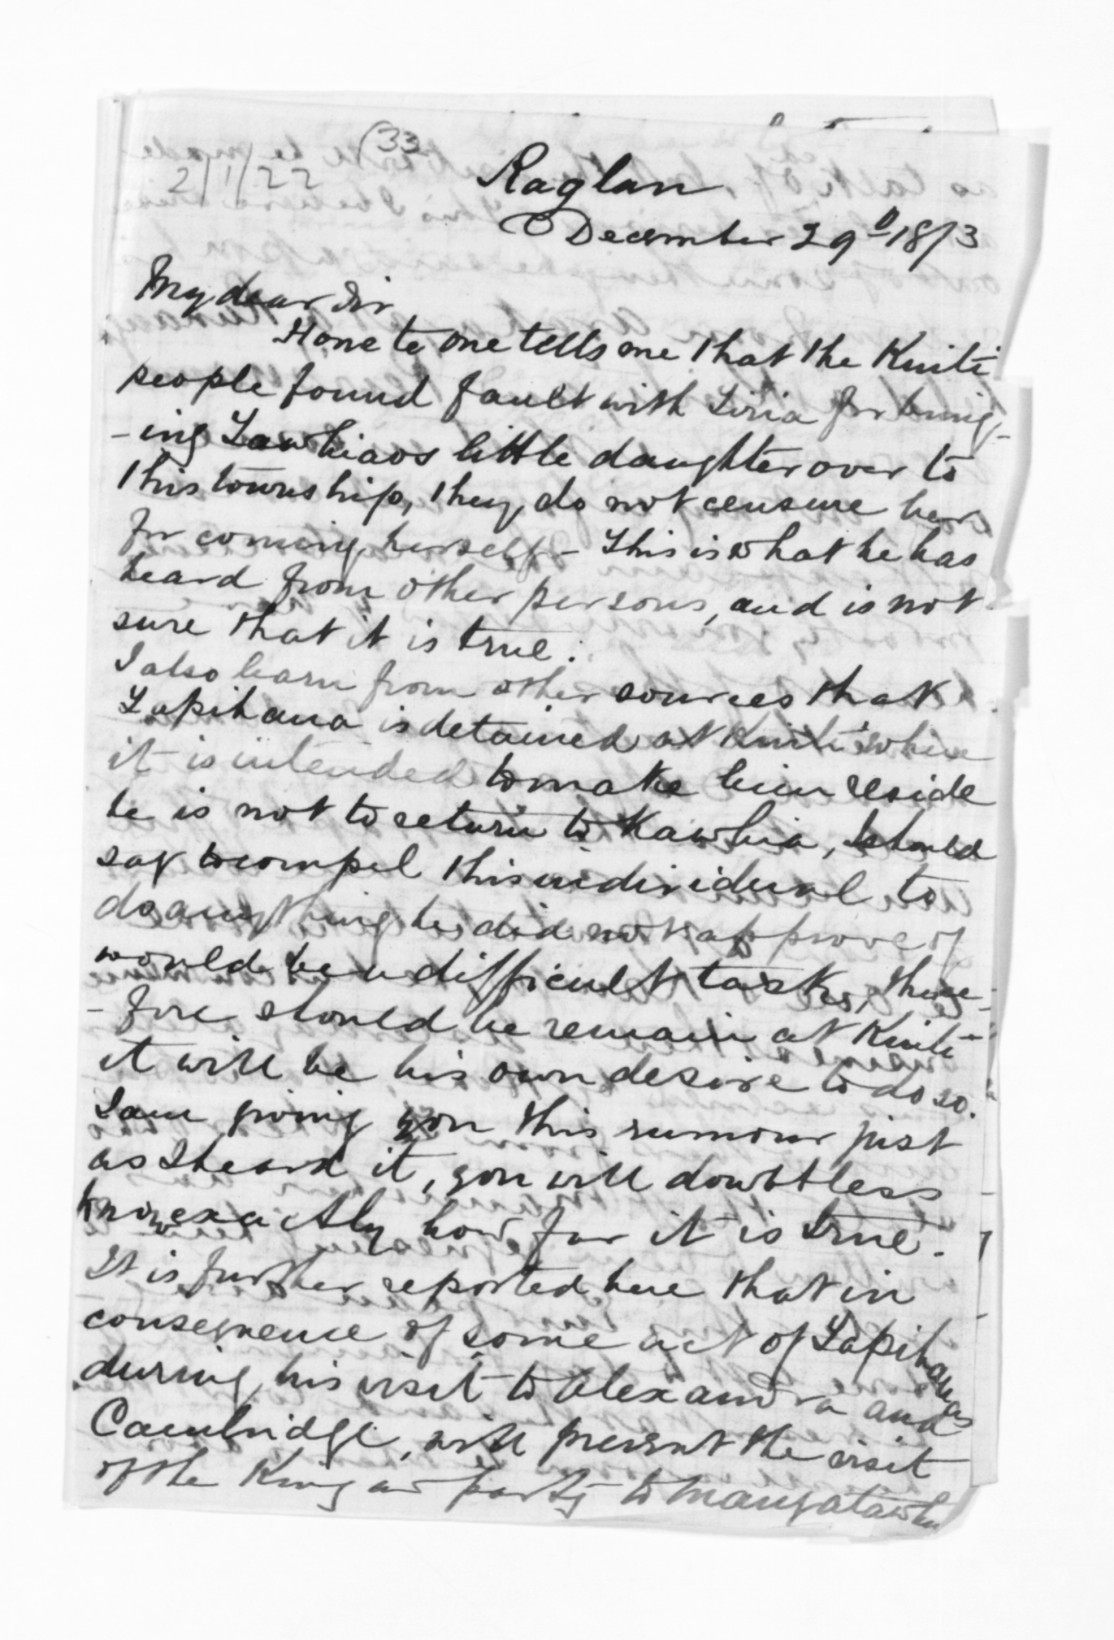 (33
2/1/22
Raglan
December 29th 1873
My dear Sir
Hone te One tells me that the Kuiti
people found fault with Tiria for bring-
-ing Tawhiaos little daughter over to
this township, they do not censure her
for coming herself - This is what he has
heard from other persons, and is not
sure that it is true.
I also learn from other sources that
Tapihana is detained at Kuiti where
it is intended to make him reside
he is not to return to Kawhia, I should
say to compel this individual to
do anything he did not approve of
would be a difficult task, there-
-fore should he remain at Kuiti
it will be his own desire to do so.
I am giving you this rumour just
as I heard it, you will doubtless
know exactly how far it is true.
It is further reported here that in
consequence of some act of Tapihanas
during his visit to Alexandra and
Cambridge, will prevent the visit
of the King party to Mangatawhi